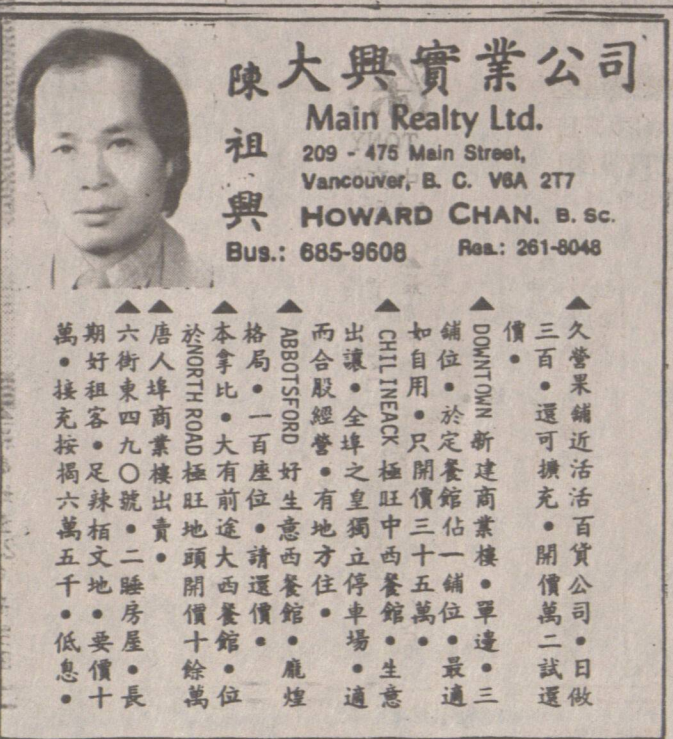 大興實業公司
陳祖興
Main Realty Ltd.
209 - 475 Main Street,
Vancouver, B. C. V6A 2T7
HOWARD CHAN. B. Sc.
Bus.: 685-9608 Res.: 261-8048
▲久營果舖近活活百貨公司•日做
三百•還可擴充•開價萬二試還
價•
▲DOWNTOWN 新建商業樓•單邊•三
舖位•於定餐館佔一舖位•最適
如自用•只開價三十五萬•
▲CHILINEACK 極旺中西餐館•生意
出讓•全埠之皇獨立停車場•適
而合股經營•有地方住•
▲ABBOTSFORD 好生意西餐館•龐煌
格局•一百座位•請還價•
▲本拿比•大有前途大西餐館•位
於NORTH ROAD 極旺地頭開價十餘萬
▲唐人埠商業樓出賣•
▲六街東四九〇號•二睡房屋•長
期好租客•足辣栢文地•要價十
萬•接充按揭六萬五千•低息•